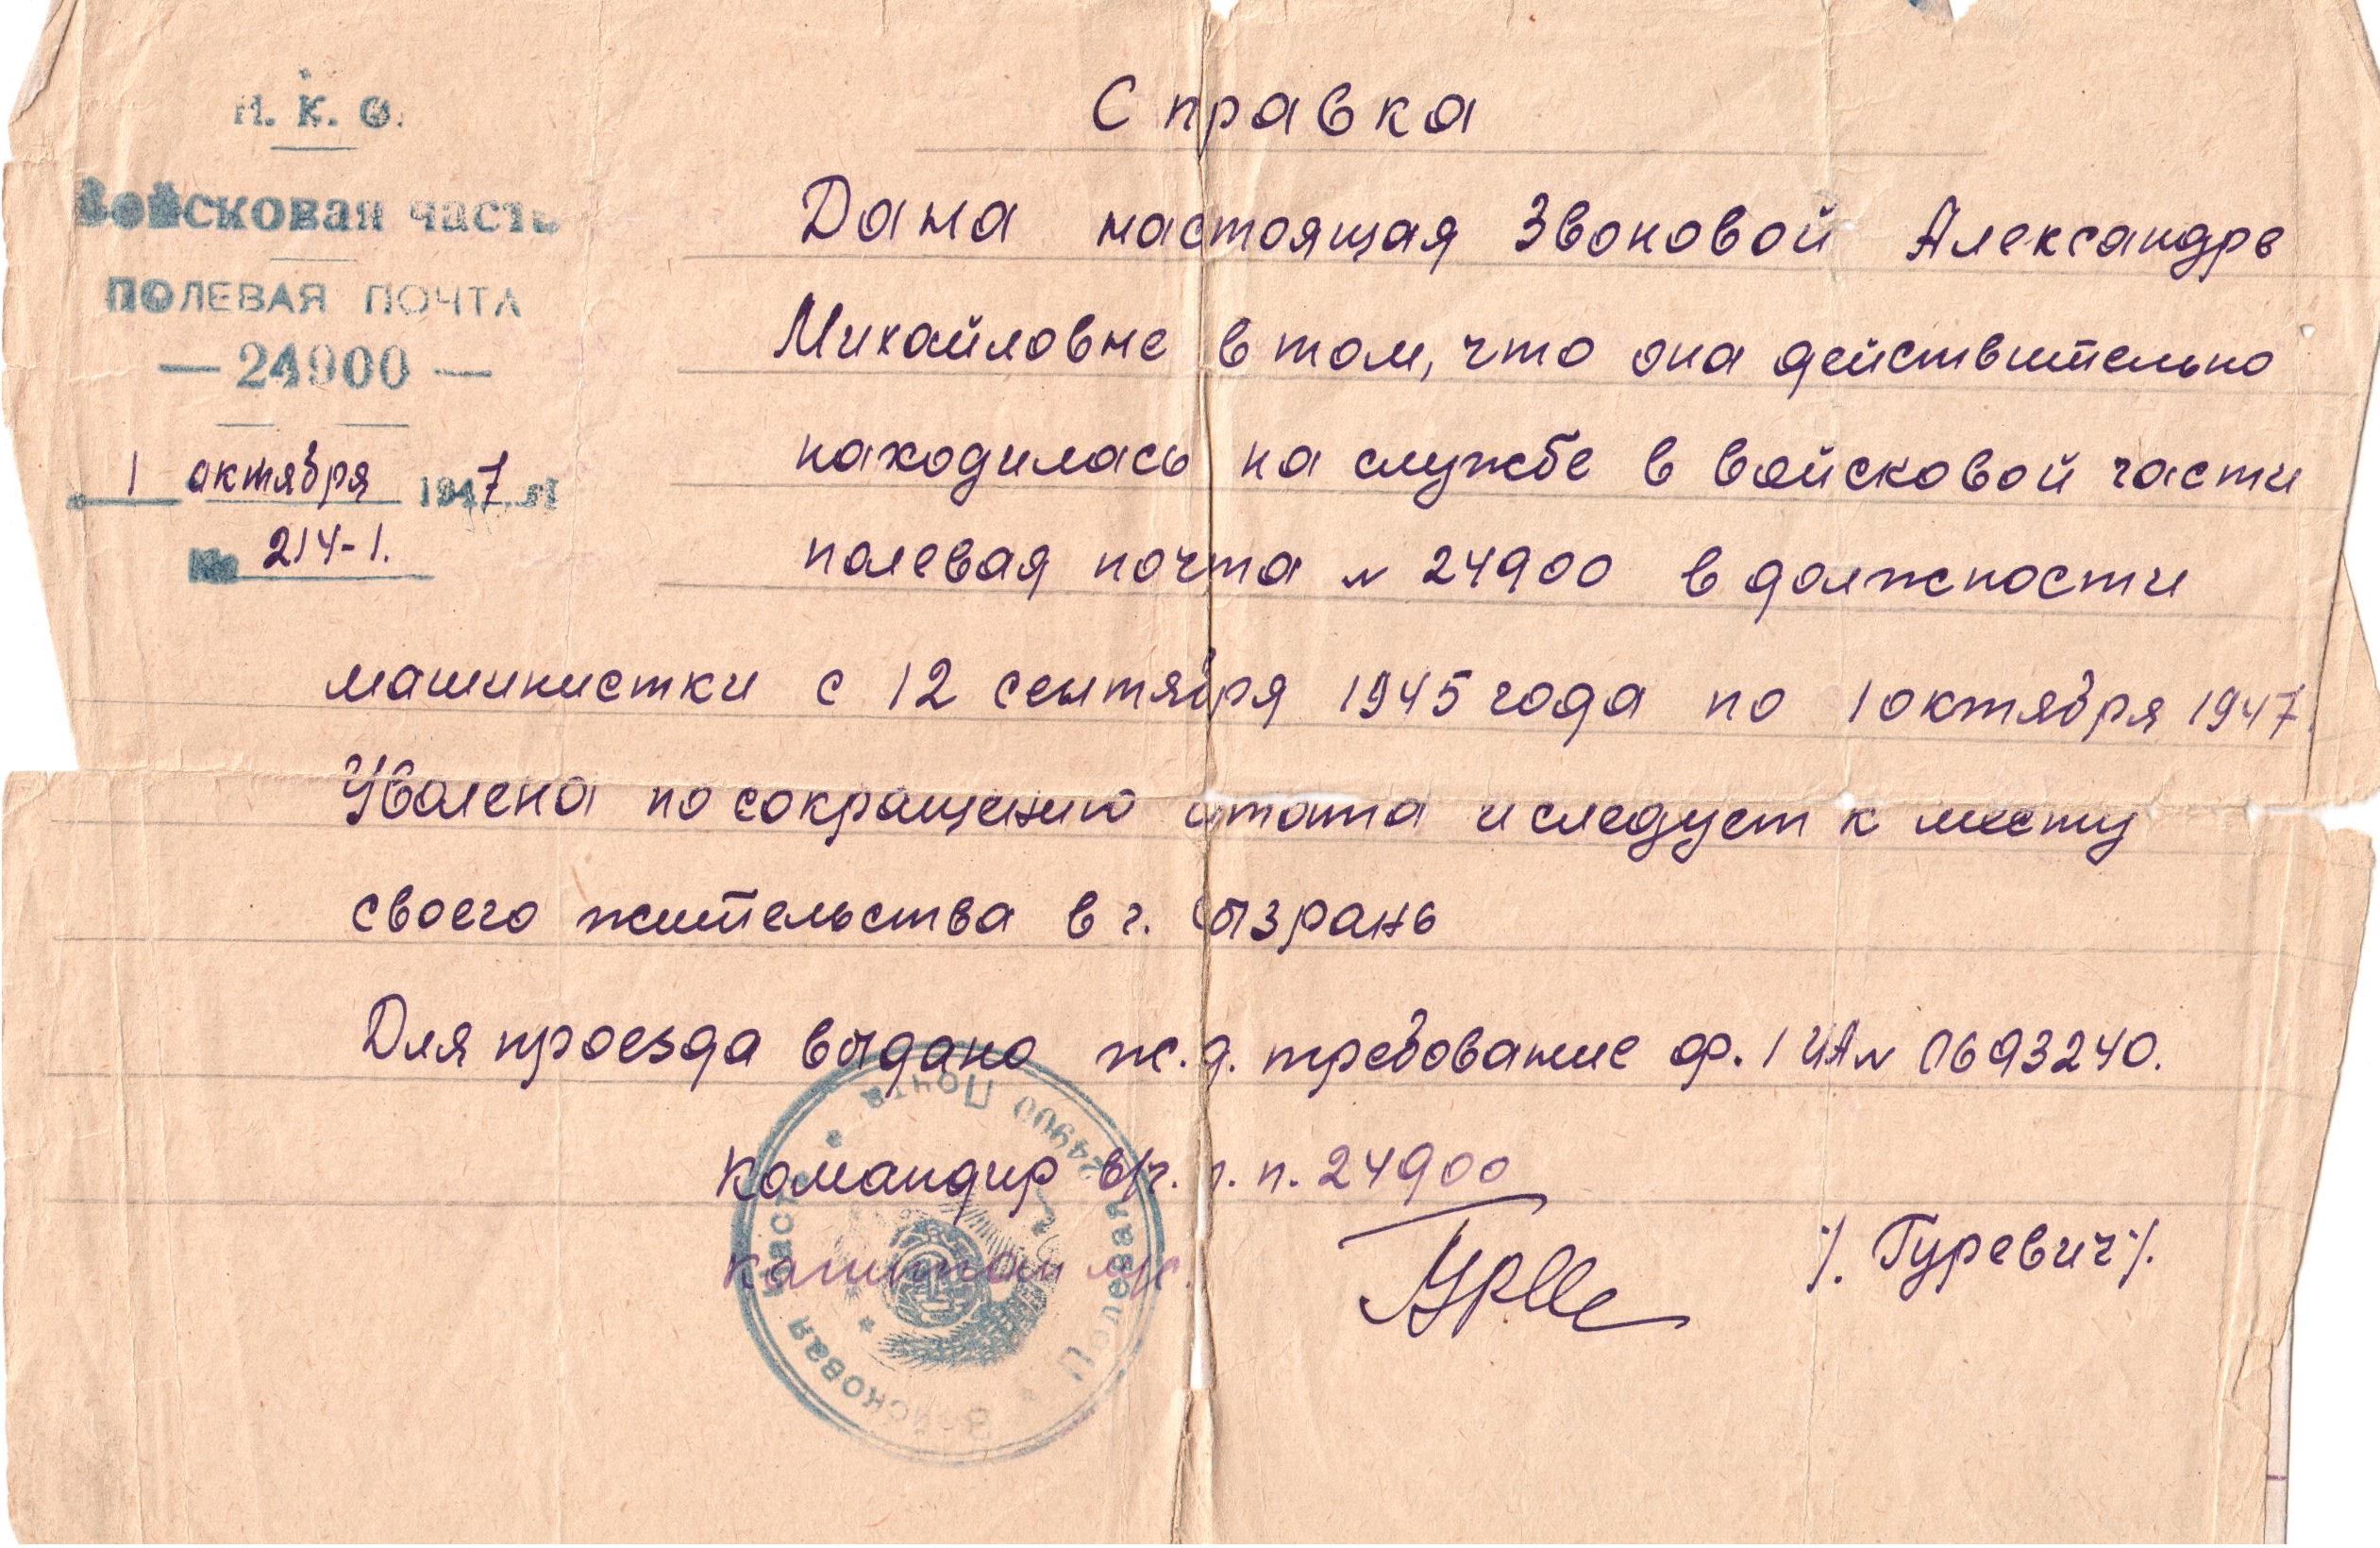 Н. К. О.
Войсковая часть
ПОЛЕВАЯ ПОЧТА
— 24900 —
1 октября 1947 г.
№ 214-1.
Справка
Дана настоящая Звоновой Александре
Михайловне в том, что она действительно
находилась на службе в войсковой части
полевая почта N 24900 в должности
машинистки с 12 сентября 1945 года по 1 октября 1947.
Уволена по сокращению штата и следует к месту
своего жительства в г. Сызрань
Для проезда выдано ж.д. требование ф. 1 N 0693240.
Командир в/ч. п. п. 24900
капитан
/. Гуревич /.
Войсковая часть * Полевая Почта 24900 *